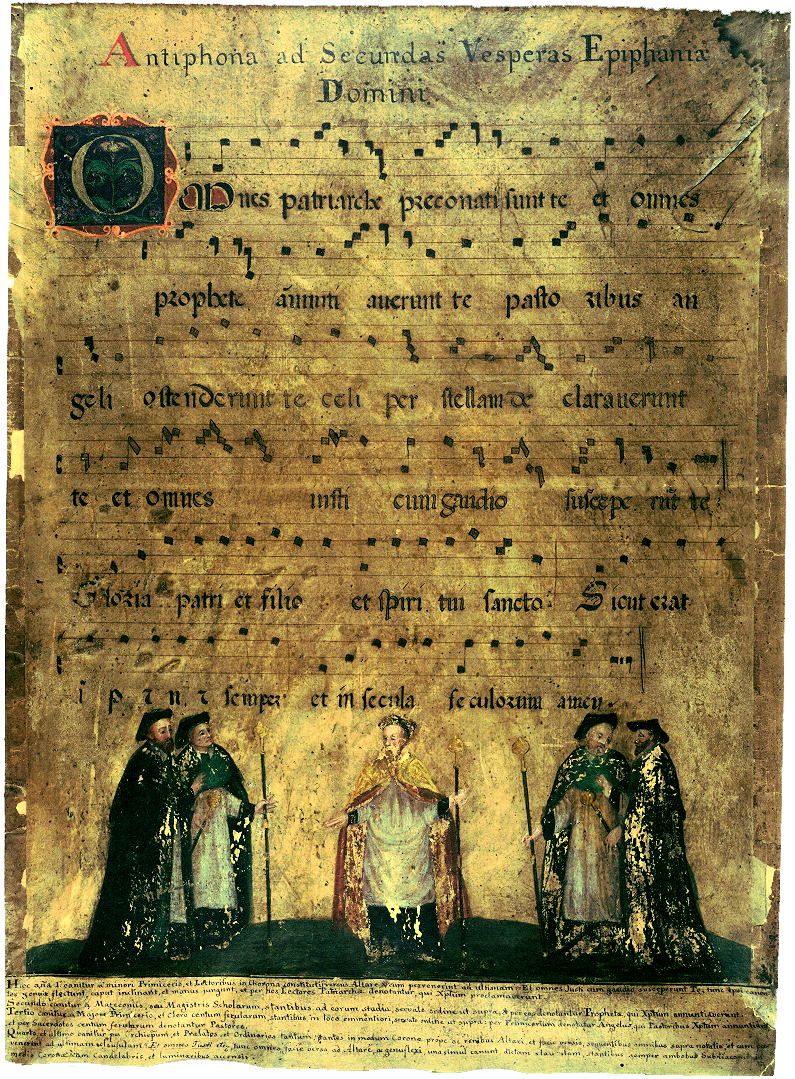 Antiphona ad Secundas Vesperas Epiphaniæ
Domini.
OMnes patriarche preconati sunt te et omnes
prophete anunti averunt te pasto ribus an
geli ostenderunt te celi per stellam de claraverunt
te et omnes insti cum gaudio suscepe rūt te
Gloria patri et filio et spiri tui sancto. Sicut erat
semper et in secula seculorum amen.
Hæc aña 1º canitur a minori Primicerio, et Lectoribus in Choro constitutis versus Altare
tes genua flectunt, caput inclinant, et manus jungunt, et per hos Lectores Patriarchæ denotantur, qui Xptum proclamaverunt.
Secundo canitur a Mateconiis, sui Magistris Scholarum, stantibus ad eorum studia, servato ordine ut supra, & per eos denotantur Prophetæ, qui Xptum annuntiaverunt.
Tertio canitur a Majore Primicerio, et Clero centum ferularum, stantibus in loco eminentiori, servato ordine ut supra: per Primicerium denotatur Angelus, qui Pastoribus Xptum annuntiavit
et per Sacerdotes centum ferularum denotantur Pastores.
Quarto, et ultimo canitur ab Archiepiscopo, et Prælatis, et Ordinariis tantum, stantes in modum Coronæ prope
Et omnes Justi etc, tunc omnes, facie versa ad Altare, ac genuflexi, una simul canunt dictam clausulam, stantibus semper ambobus Subdiaconis
medio Coronæ cum Candelabris, et luminaribus accensis.